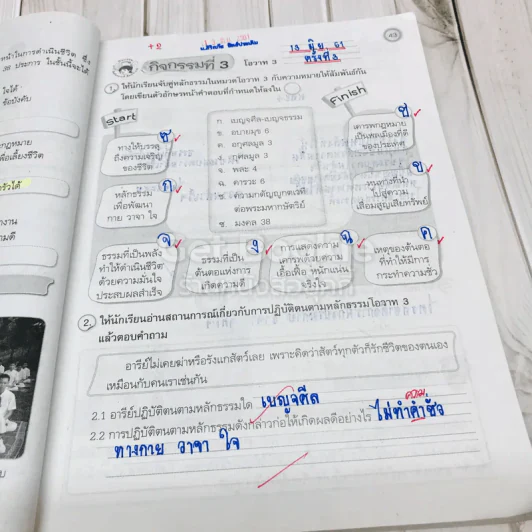 43
13 มิ.ย. 61
ครั้งที่ 3
กิจกรรมที่ 3 โอวาท 3
1. ให้นักเรียนจับคู่หลักธรรมในหมวดโอวาท 3 กับความหมายให้สัมพันธ์กัน
โดยเขียนตัวอักษรหน้าคำตอบที่กำหนดให้ลงใน
Start
Finish
ก เบญจศีล-เบญจธรรม
ข. อบายมุข 6
ค. อกุศลมูล 3
ง กุศลมูล 3
จ. พละ 4
ฉ คารวะ 6
ช ความกตัญญูกตเวที
ต่อพระมหากษัตริย์
ซ มงคล 38
ซ
ทางให้บรรลุ
ถึงความเจริญ
ของชีวิต
ก
หลักธรรม
เพื่อพัฒนา
กาย วาจา ใจ
จ
ธรรมที่เป็นพลัง
ทำให้ดำเนินชีวิต
ด้วยความมั่นใจ
ประสบผลสำเร็จ
ง
ธรรมที่เป็น
ต้นตอแห่งการ
เกิดความดี
ฉ
การแสดงความ
เคารพด้วยความ
เอื้อเฟื้อ หนักแน่น
จริงใจ
ค
เหตุของต้นตอ
ที่ทำให้มีการ
กระทำความชั่ว
ข
หนทางที่นำ
ไปสู่ความ
เสื่อมสูญเสียทรัพย์
ช
เคารพกฎหมาย
เป็นพลเมืองที่ดี
ของประเทศ
2. ให้นักเรียนอ่านสถานการณ์เกี่ยวกับการปฏิบัติตนตามหลักธรรมโอวาท 3
แล้วตอบคำถาม
อารีย์ไม่เคยฆ่าหรือรังแกสัตว์เลย เพราะคิดว่าสัตว์ทุกตัวก็รักชีวิตของตนเอง
เหมือนกับคนเราเช่นกัน
2.1 อารีย์ปฏิบัติตนตามหลักธรรมใด เบญจศีล
2.2 การปฏิบัติตนตามหลักธรรมดังกล่าวก่อให้เกิดผลดีอย่างไร ไม่ทำคำชั่ว
ความ
ทางกาย วาจา ใจ